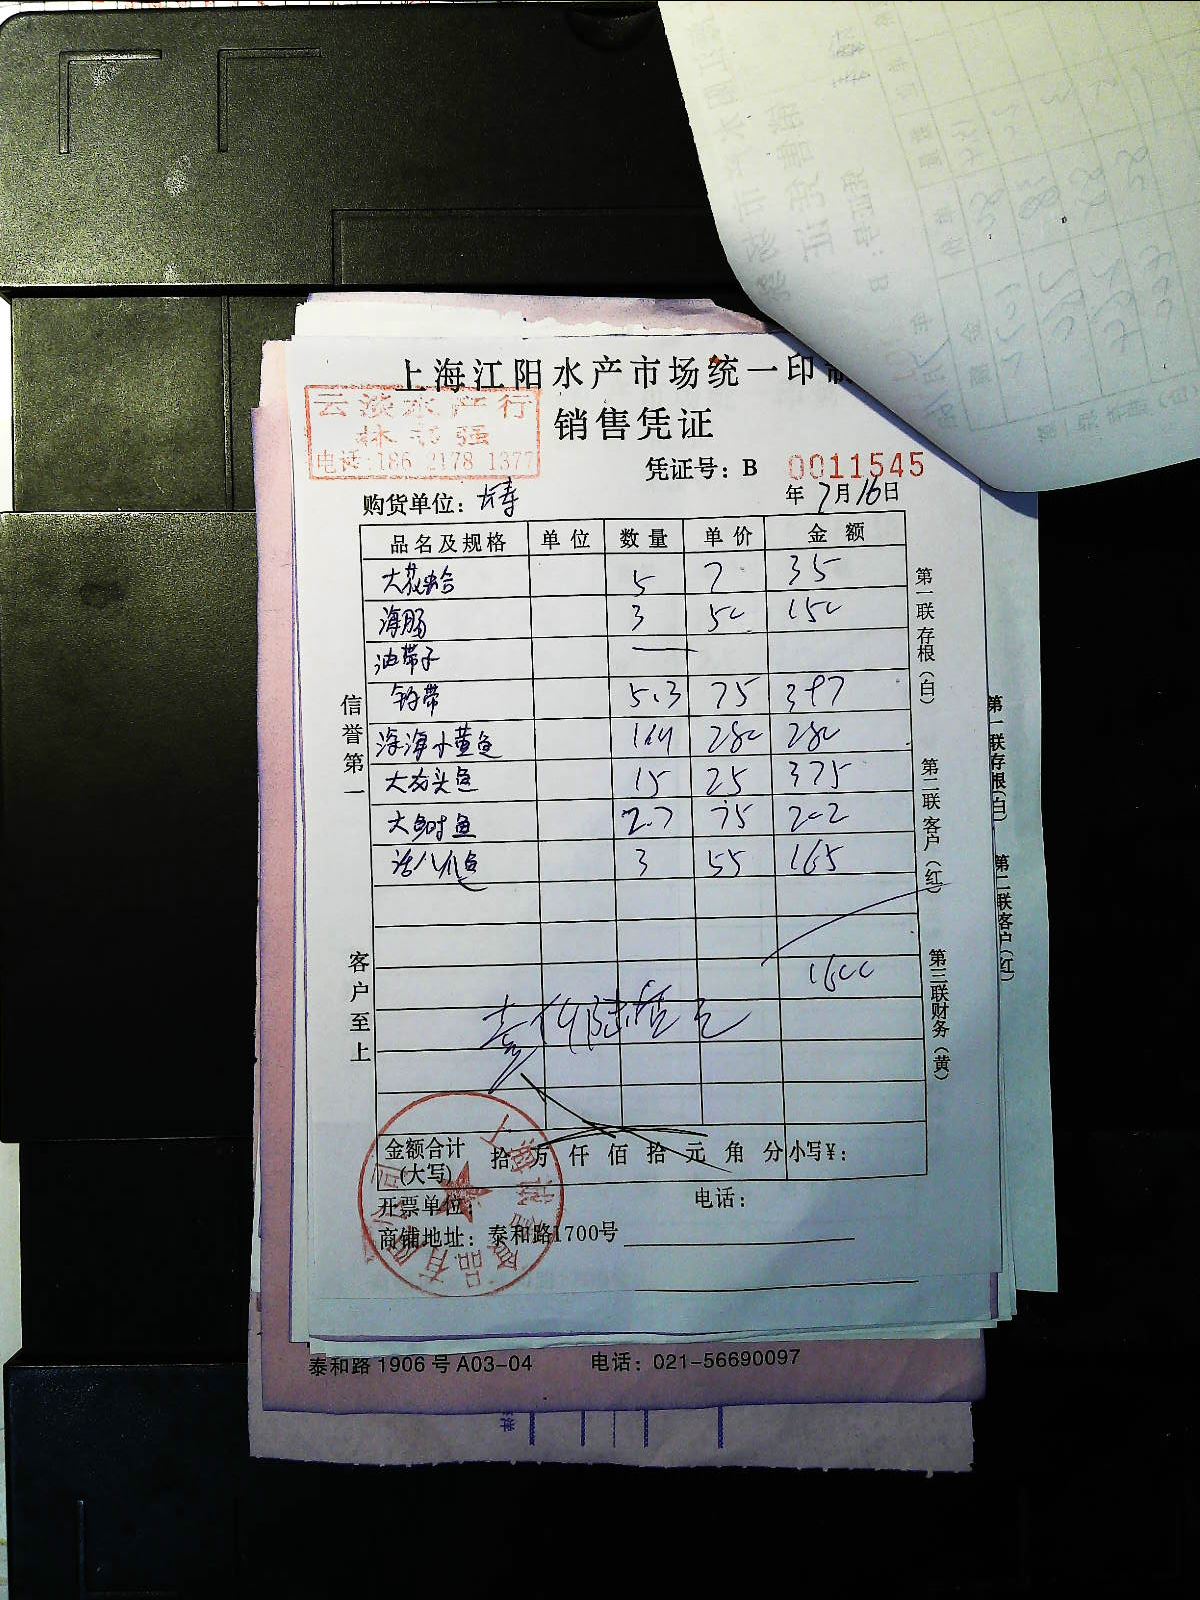 上海江阳水产市场统一印制
云淡水产行
电话:186 2178 1377
销售凭证
凭证号：B 0011545
购货单位：长寿
年 7月16日
品名及规格 单位 数量 单价 金额
大花蛤 5 7 35
海肠 3 50 150
油带子 —
钓带 5.3 75 397
深海小黄鱼 280 280
大龙头鱼 15 25 375
大鲥鱼 2.7 75 202
活八爪鱼 3 55 165
1600
壹仟陆佰元
金额合计(大写) 拾 万 仟 佰 拾 元 角 分 小写¥：
开票单位： 电话：
商铺地址：泰和路1700号
信誉第一
客户至上
第一联存根(白)
第二联客户(红)
第三联财务(黄)
第一联存根(白)
第二联客户(红)
泰和路 1906 号 A03-04 电话：021-56690097